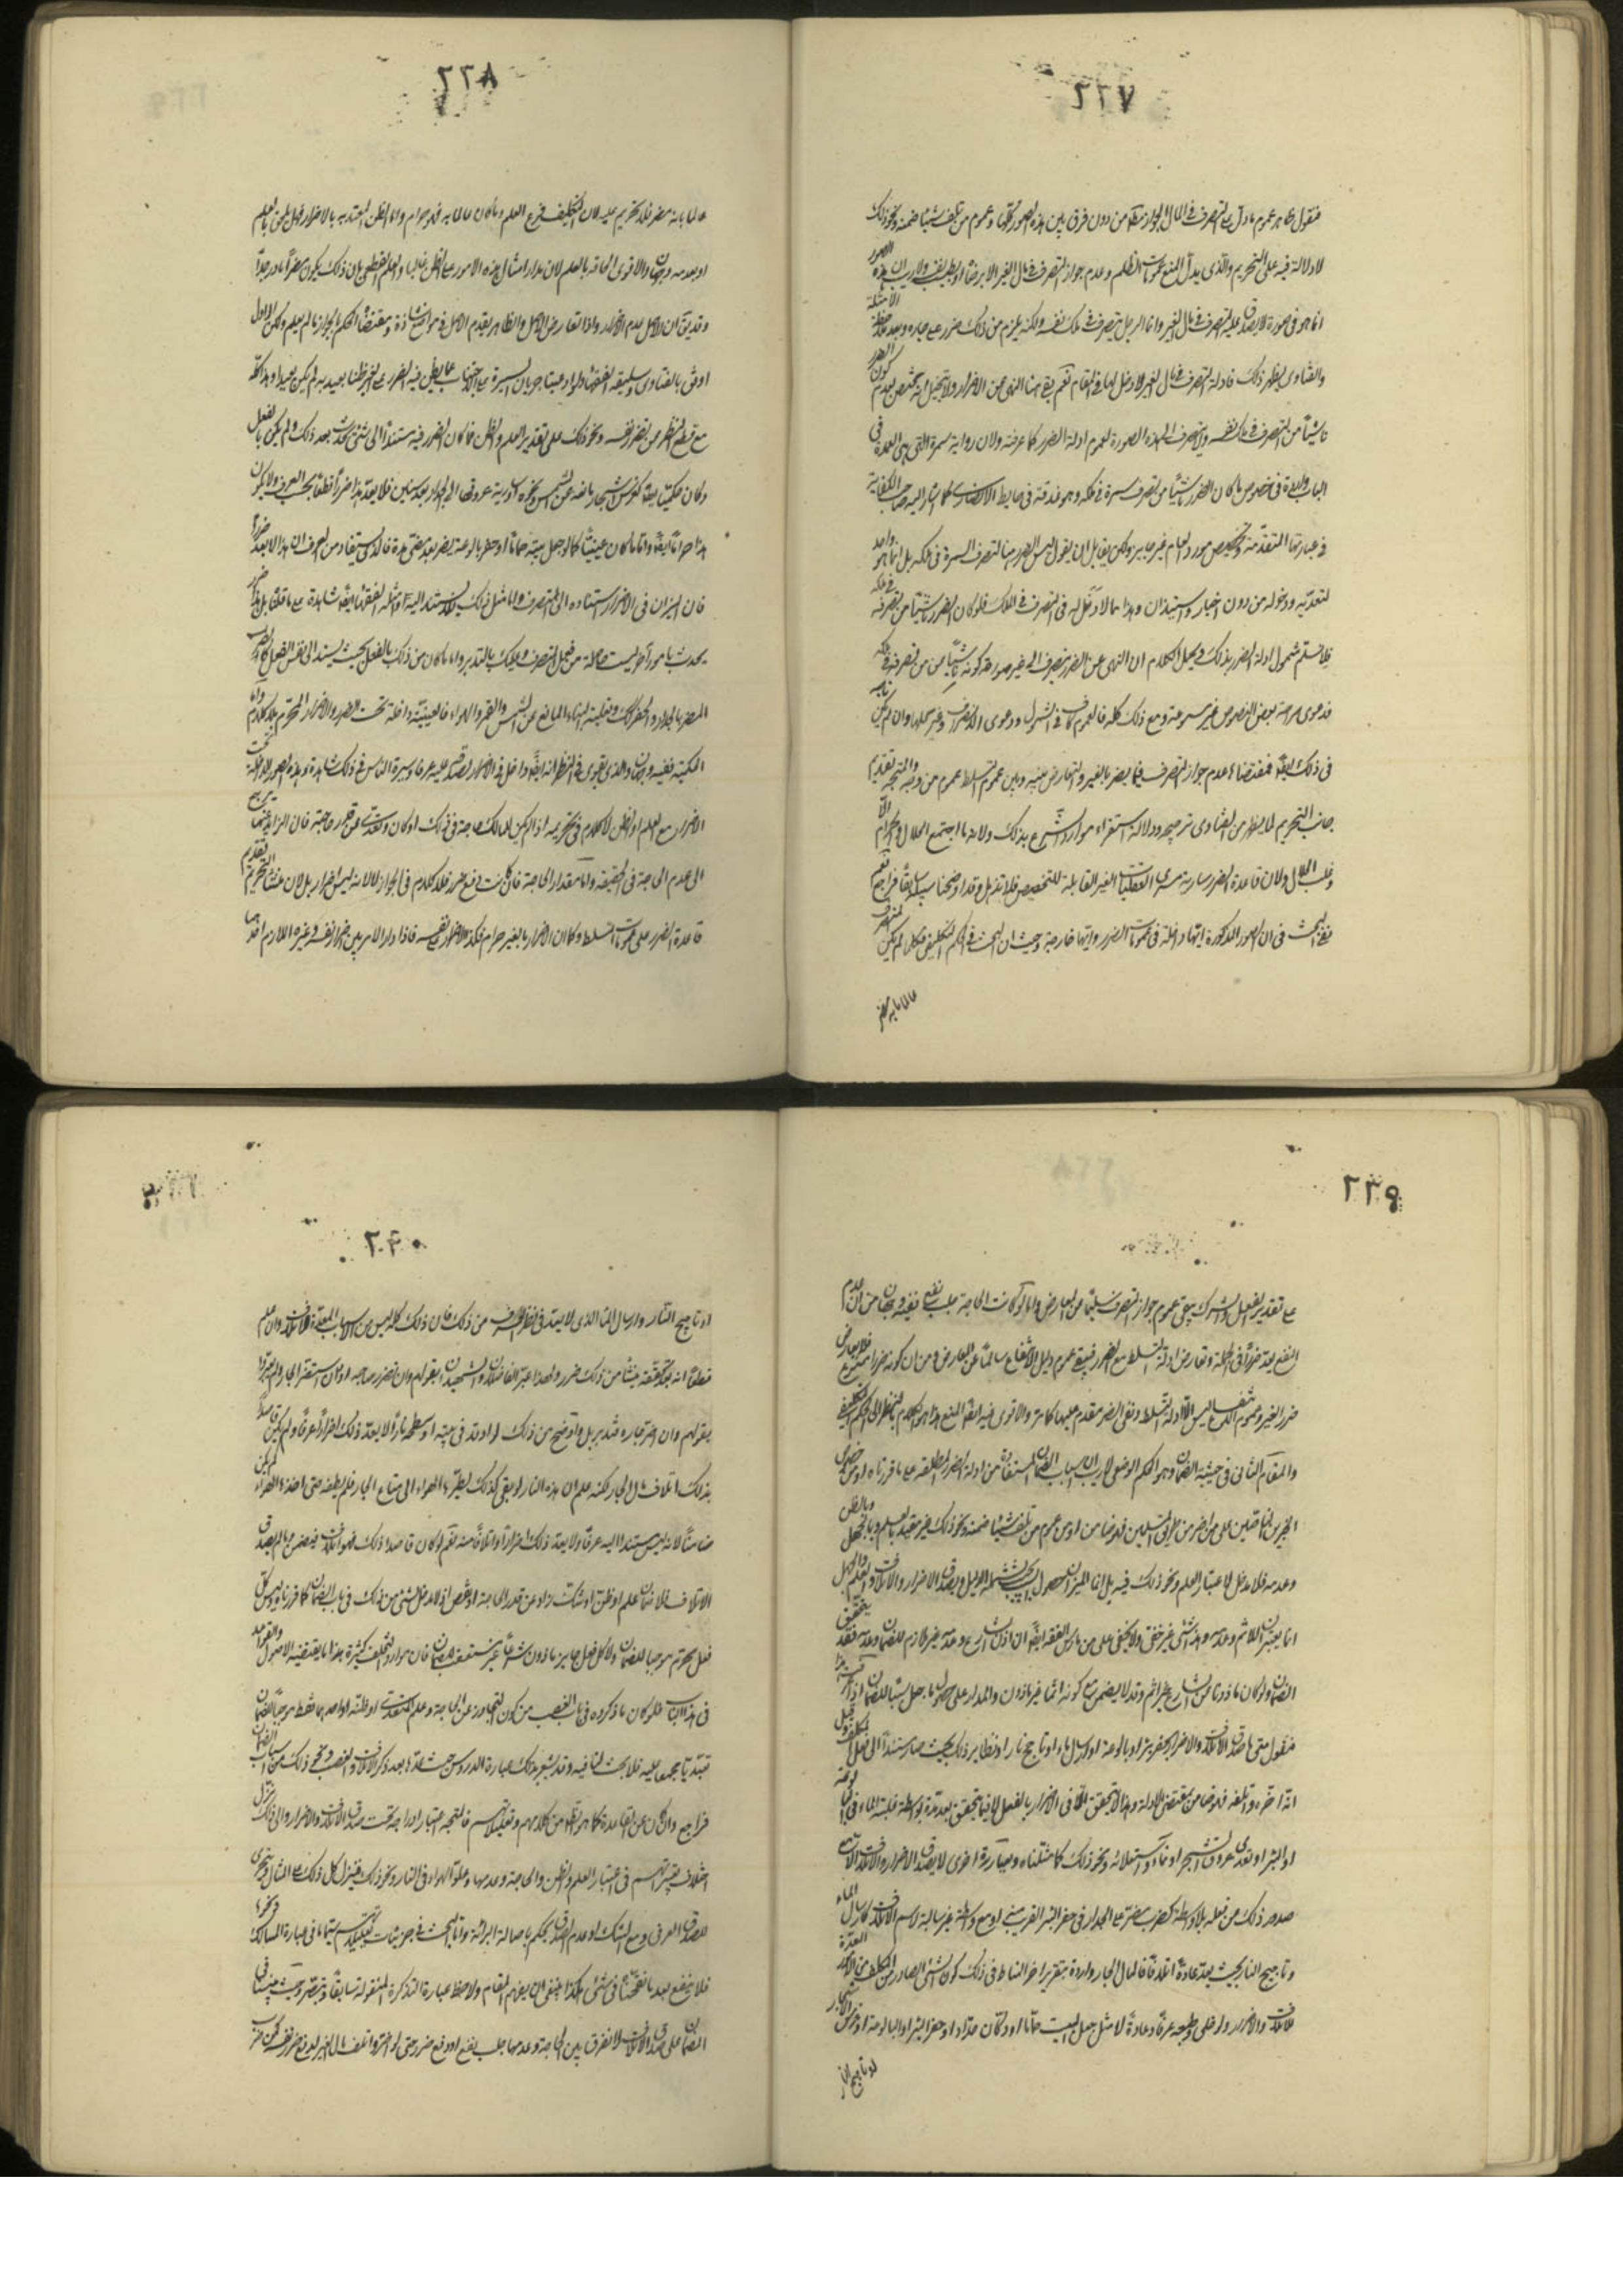 ٢٢٧
فنقول ظاهر عموم ما دل على التصرف في المال الجواز مطلقا من دون فرق بين هذه الصور كلها وعموم من تلف شيئا ضمنه ونحو ذلك
لا دلالة فيه على التحريم والذي يدل المنع عمومات الظلم وعدم جواز التصرف في مال الغير الا برضاه او بطيب نفسه ولا ريب ان هذه الصور
انما هو في صورة لا يصدق عليه التصرف في مال الغير وانما الرجل يتصرف في ملك نفسه ولكنه يلزم من ذلك ضرر على جاره وبعد ملاحظة الامثلة
والفتاوى يظهر ذلك فادلة التصرف في مال الغير لا دخل لها في المقام نعم يبقى هنا النهي عن الاضرار ولا يتخيل انه مختص بعدم كون الضرر
ناشئا من التصرف في ملك نفسه ولا ينصرف الى هذه الصورة لعموم ادلة الضرر كما عرفته ولان رواية سمرة التي هي العمدة في
الباب واردة في خصوص ما كان الضرر ناشئا من تصرف سمرة في ملكه وهو عذقه في حايط الانصاري كما اشار اليه صاحب الكفاية
في عبارتها المتقدمة وتخصيص مورد العام غير جايز ولكن لقايل ان يقول ليس الضرر هنا لتصرف السمرة في ملكه بل انما هو واحد
لتعديه ودخوله من دون اخبار واستيذان وهذا مما لا دخل له في التصرف في الملك فلو كان الضرر ناشئا من تصرفه في ملكه
فلا نسلم شمول ادلة الضرر بذلك ومحل الكلام ان النهي عن الضرر ينصرف الى غير صورة كونه ناشئا من تصرفه في ملكه
فدعوى صراحة بعض النصوص غير مسموعة ومع ذلك كله فالعموم كاف في الشمول ودعوى الانصراف في غير محلها وان لم يكن
في ذلك ايضا فمقتضاه عدم جواز التصرف فيما يضر بالغير والتعارض بينه وبين عموم التسلط عموم من وجه والمتجه تقديم
جانب التحريم لما يظهر من الفتاوى ترجيحه ودلالة استقراء موارد الشرع بذلك ولانه ما اجتمع الحلال والحرام الا
وغلب الحلال ولان قاعدة الضرر سارية مسرى العقليات الغير القابلة للتخصيص فلا تذهل وقد اوضحنا سبيله سابقا فراجع نعم
يقع البحث في ان الصور المذكورة ايتها داخلة في عمومات الضرر وايتها خارجة وحيث ان البحث في الحكم التكليفي فكل ما لم يكن المتصرف
عالما بانه مضر
٢٢٨
عالما بانه مضر فلا تحريم عليه لان التكليف فرع العلم وما كان عالما به فهو حرام واما الظن المعتد به بالاضرار فهل يلحق بالعلم
او بعدمه وجهان والاقوى الحاقه بالعلم لان مدار امثال هذه الامور على الظن غالبا والعلم القطعي بان ذلك يكون مضرا نادر جدا
وقد يق ان الاصل عدم الاضرار واذا تعارض الاصل والظاهر يقدم الاصل الا في مواضع شاذة ومقتضاه الحكم بالجواز ما لم يعلم ولكن الاول
اوفق بالفتاوى وسليقة الفقهاء ولو ادعينا جريان السيرة على الاجتناب عما يظن فيه الضرر على الغير ظنا يعتد به لم يكن بعيدا وهذا كله
مع قطع النظر عمن يضر نفسه ونحو ذلك فعلى تقدير العلم والظن فما كان الضرر فيه مستندا الى شئ يحدث بعد ذلك ولم يكن بالفعل
هذا حراما ايضا واما ما كان عينيا كما لو جعل بيته حماما او حفر بالوعة يضر بعد مضي مدة فالذي يستفاد من العرف ان هذا لا يعد ضررا
فان الميزان في الاضرار استناده الى التصرف واما مثل ذلك فلا يستند اليه وامثلة الفقهاء ايضا شاهدة على ما قلناه بل هذا ضرر
يحدث بامور اخر ليست حاصلة من فعل المتصرف وعليك بالتدبر واما ما كان من ذلك بالفعل بحيث يستند الى نفس الفعل
المضر بالجدار والحفر كك وتعلية البناء المانع عن الشمس والقمر والهواء فالعينية داخلة تحت الضرر والاضرار المحرم بلا كلام واما
الحكمية ففيه وجهان والذي يقوى في النظر انه ايضا داخل في الاضرار لصدقه عليه عرفا وسيرة الناس في ذلك شاهدة وهذه الصور الداخلة تحت
الاضرار مع العلم او الظن لا كلام في تحريمه اذا لم يكن للمالك حاجة في ذلك او كان وتعدى عن قدر حاجته فان الزايد عنها يرجع
الى عدم الحاجة في الحقيقة واما مقدار الحاجة فان كانت لدفع ضرر فلا كلام في الجواز لا لانه ليس اضرار بل لان منشا التحريم تقديم
قاعدة الضرر على عمومات التسلط وكما ان الاضرار بالغير حرام فكذا الاضرار على نفسه فاذا دار الامر بين ضرر نفسه وغيره اللازم احدهما
٢٢٩
على تقدير الفعل والترك يبقى عموم جواز التصرف سليما عن المعارض واما لو كانت الحاجة جلب نفع ففيه وجهان من ان عدم
النفع يعد ضررا في الجملة وتعارض ادلة التسلط مع الضرر فيبقى عموم دليل الانتفاع سالما عن المعارض ومن ان كونه ضررا ممنوع فلا يعارض
ضرر الغير وعموم النفع ليس الا ادلة التسلط ونفي الضرر مقدم عليها كما مر والاقوى فيه ايضا المنع هذا هو الكلام بالنظر الى الحكم التكليفي
والمقام الثاني في حيثية الضمان وهو الحكم الوضعي لا ريب ان اسباب الضمان المستفادة من ادلة الضرر المطلقة على ما قررناه او من خصوص
الخبرين الناصين على من اضر من طريق المسلمين فهو ضامن او من عموم من تلف شيئا ضمنه ونحو ذلك غير مقيد بالعلم وبالجهل وبالظن
وعدمه فلا مدخل لاعتبار العلم ونحو ذلك فيه بل انما الميزان حصول السبب بحيث يشمله الدليل ويصدق الاضرار والاتلاف والعلم والجهل
انما يعتبران للاثم وعدمه وهو شئ غير خفي ولا يخفى على من مارس الفقه ايضا ان اذن الشارع وعدمه غير ملازم للضمان وعدمه فقد يتحقق
الضمان ولو كان ماذونا من الشارع غير اثم وقد لا يضمن مع كونه اثما غير ماذون والمدار على حصول ما جعل سببا للضمان
فنقول متى ما صدق الاتلاف والاضرار بحفر بئر او بالوعة او ارسال ماء او تاجيج نار او نظاير ذلك بحيث صار مستندا الى فعل المكلف
انه اضره واتلفه فهو ضامن بمقتضى الادلة وهذا لا يتحقق الا في الاضرار بالفعل لا فيما يتحقق بعد مدة بواسطة غلبة الماء في البالوعة
او البئر او لتعدي عروق الشجر او نماءه واستعلائه ونحو ذلك كما مثلناه وبعبارة اخرى لا يصدق الاضرار والاتلاف الا مع
صدور ذلك من فعله بلا واسطة كضرب مضرب على الجدار في حفر البئر القريب منه او مع واسطة غير سالبة لاسم الاتلاف كارسال الماء
وتاجيج النار بحيث يعد عادة اتلافا لمال الجار وارادة بتقرير اخر المناط في ذلك كون الشئ الصادر من المكلف من الامور المعدة
للاتلاف والاضرار ولو خلي وطبعه عرفا وعادة لا مثل جعل البيت حماما او دكان حدادا او حفر البئر او البالوعة او غرس الاشجار
او تاجيج النار
٢٣٠
او تاجيج النار وارسال الماء الذي لا يعتد في نظر العرف من ذلك فان ذلك كله ليس من الاسباب المعدة للاتلاف وان علم
قطعا انه بعد تحققه ينشا من ذلك ضرر ولهذا عبر الفاضلان والشهيدان بقولهم وان تضرر صاحبه او وان استضر الجار ولم يعبروا
بقولهم وان اضر بجاره فتدبر بل واوضح من ذلك لو اوقد في بيته او سطحه نارا لا يعد ذلك اضرارا عرفا ولم يكن قاصدا
بذلك اتلاف مال الجار لكنه علم ان هذه النار لو بقي كذلك يطيره الهواء الى متاع الجار فلم يطفه حتى اخذه الهواء لم يكن
ضامنا لانه ليس مستندا اليه عرفا ولا يعد ذلك اضرارا واتلافا منه نعم لو كان قاصدا ذلك فهو اتلاف فيضمن وما لم يصدق
الاتلاف فلا ضمان علم او ظن او شك زاد عن قدر الحاجة او نقص اذ لا مدخل لشئ من ذلك في باب الضمان كما قررنا وليس كل
فعل محرم موجبا للضمان ولا كل فعل جايز ماذون شرعا غير مستعقب للضمان فان موارد التخلف كثيرة هذا ما يقتضيه الاصول والقواعد
في هذا الباب فلو كان ما ذكروه في باب الغصب من كون التجاوز عن الحاجة وعلم التعدي او ظنه او احدهما فقط موجبا للضمان
تعبديا مجمعا عليه فلا بحث لنا فيه وقد يشعر بذلك عبارة الدروس حيث عدها بعد ذكر الاتلاف والغصب ونحو ذلك من اسباب الضمان
فراجع وان كان عن القاعدة كما هو الظاهر من كلامهم وتعليلاتهم فالمتجه اعتبار اندراجه تحت صدق الاتلاف والاضرار والى ذلك ينزل
اختلاف تعبيراتهم في اعتبار العلم والظن والحاجة وعدمها وعلو الهواء في النار ونحو ذلك فينزل كل ذلك على المثال ويتحرى
للصدق العرفي ومع الشك او عدم الصدق يحكم باصالة البرائة واما البحث في جزئيات تعليلاتهم سيما ما في عبارة المسالك ونحوها
فلا ينفع بعد ما نقحناه في شئ هكذا ينبغي ان يفهم المقام ولاحظ عبارة التذكرة المنقولة سابقا وتبصر وحيث بنينا في
الضمان على صدق الاتلاف ولا نفرق بين الحاجة وعدمها جلب نفع او دفع ضرر حتى لو اضر واتلف مال الغير لدفع ضرر نفسه